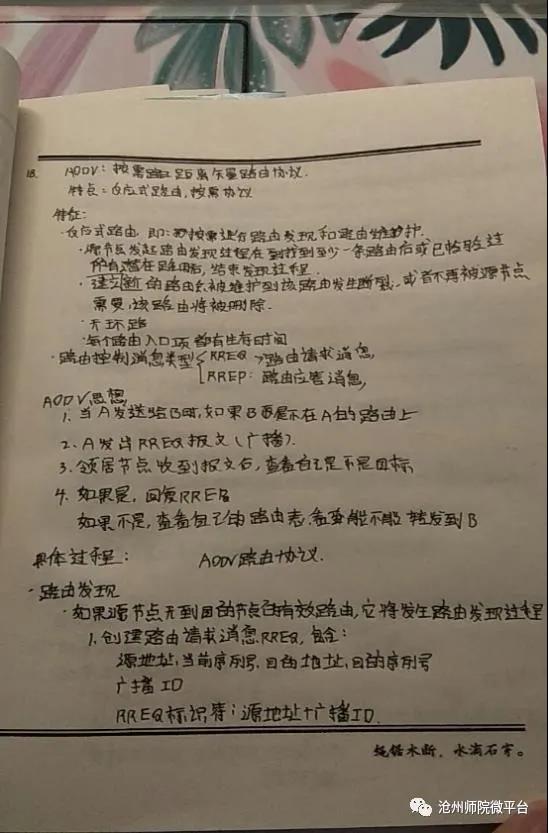 18. AODV：按需路由距离矢量路由协议.
特点：反应式路由，按需协议
特征：
·反应式路由，即：按需进行路由发现和路由维护.
·源节点发起路由发现过程在到找到至少一条路由后或已检验过
所有潜在路由后，结束发现过程.
·建立新的路由被维护到该路由发生断裂、或者不再被源节点
需要，该路由将被删除.
·无环路
·每个路由入口项都有生存时间
·路由控制消息类型 RREQ 路由请求消息
RREP：路由应答消息
AODV思想
1. 当A发送给B时，如果B不在A的路由上
2. A发出RREQ报文（广播）.
3. 领居节点收到报文后，查看自己是不是目标
4. 如果是，回复RREP
如果不是，查看自己的路由表，看能不能转发到B
具体过程： AODV路由协议.
·路由发现
·如果源节点无到目的节点的有效路由，它将发生路由发现过程
1. 创建路由请求消息RREQ，包含：
源地址，当前序列号，目的地址，目的序列号
广播ID
RREQ标识符：源地址+广播ID.
绳锯木断，水滴石穿。
沧州师院微平台